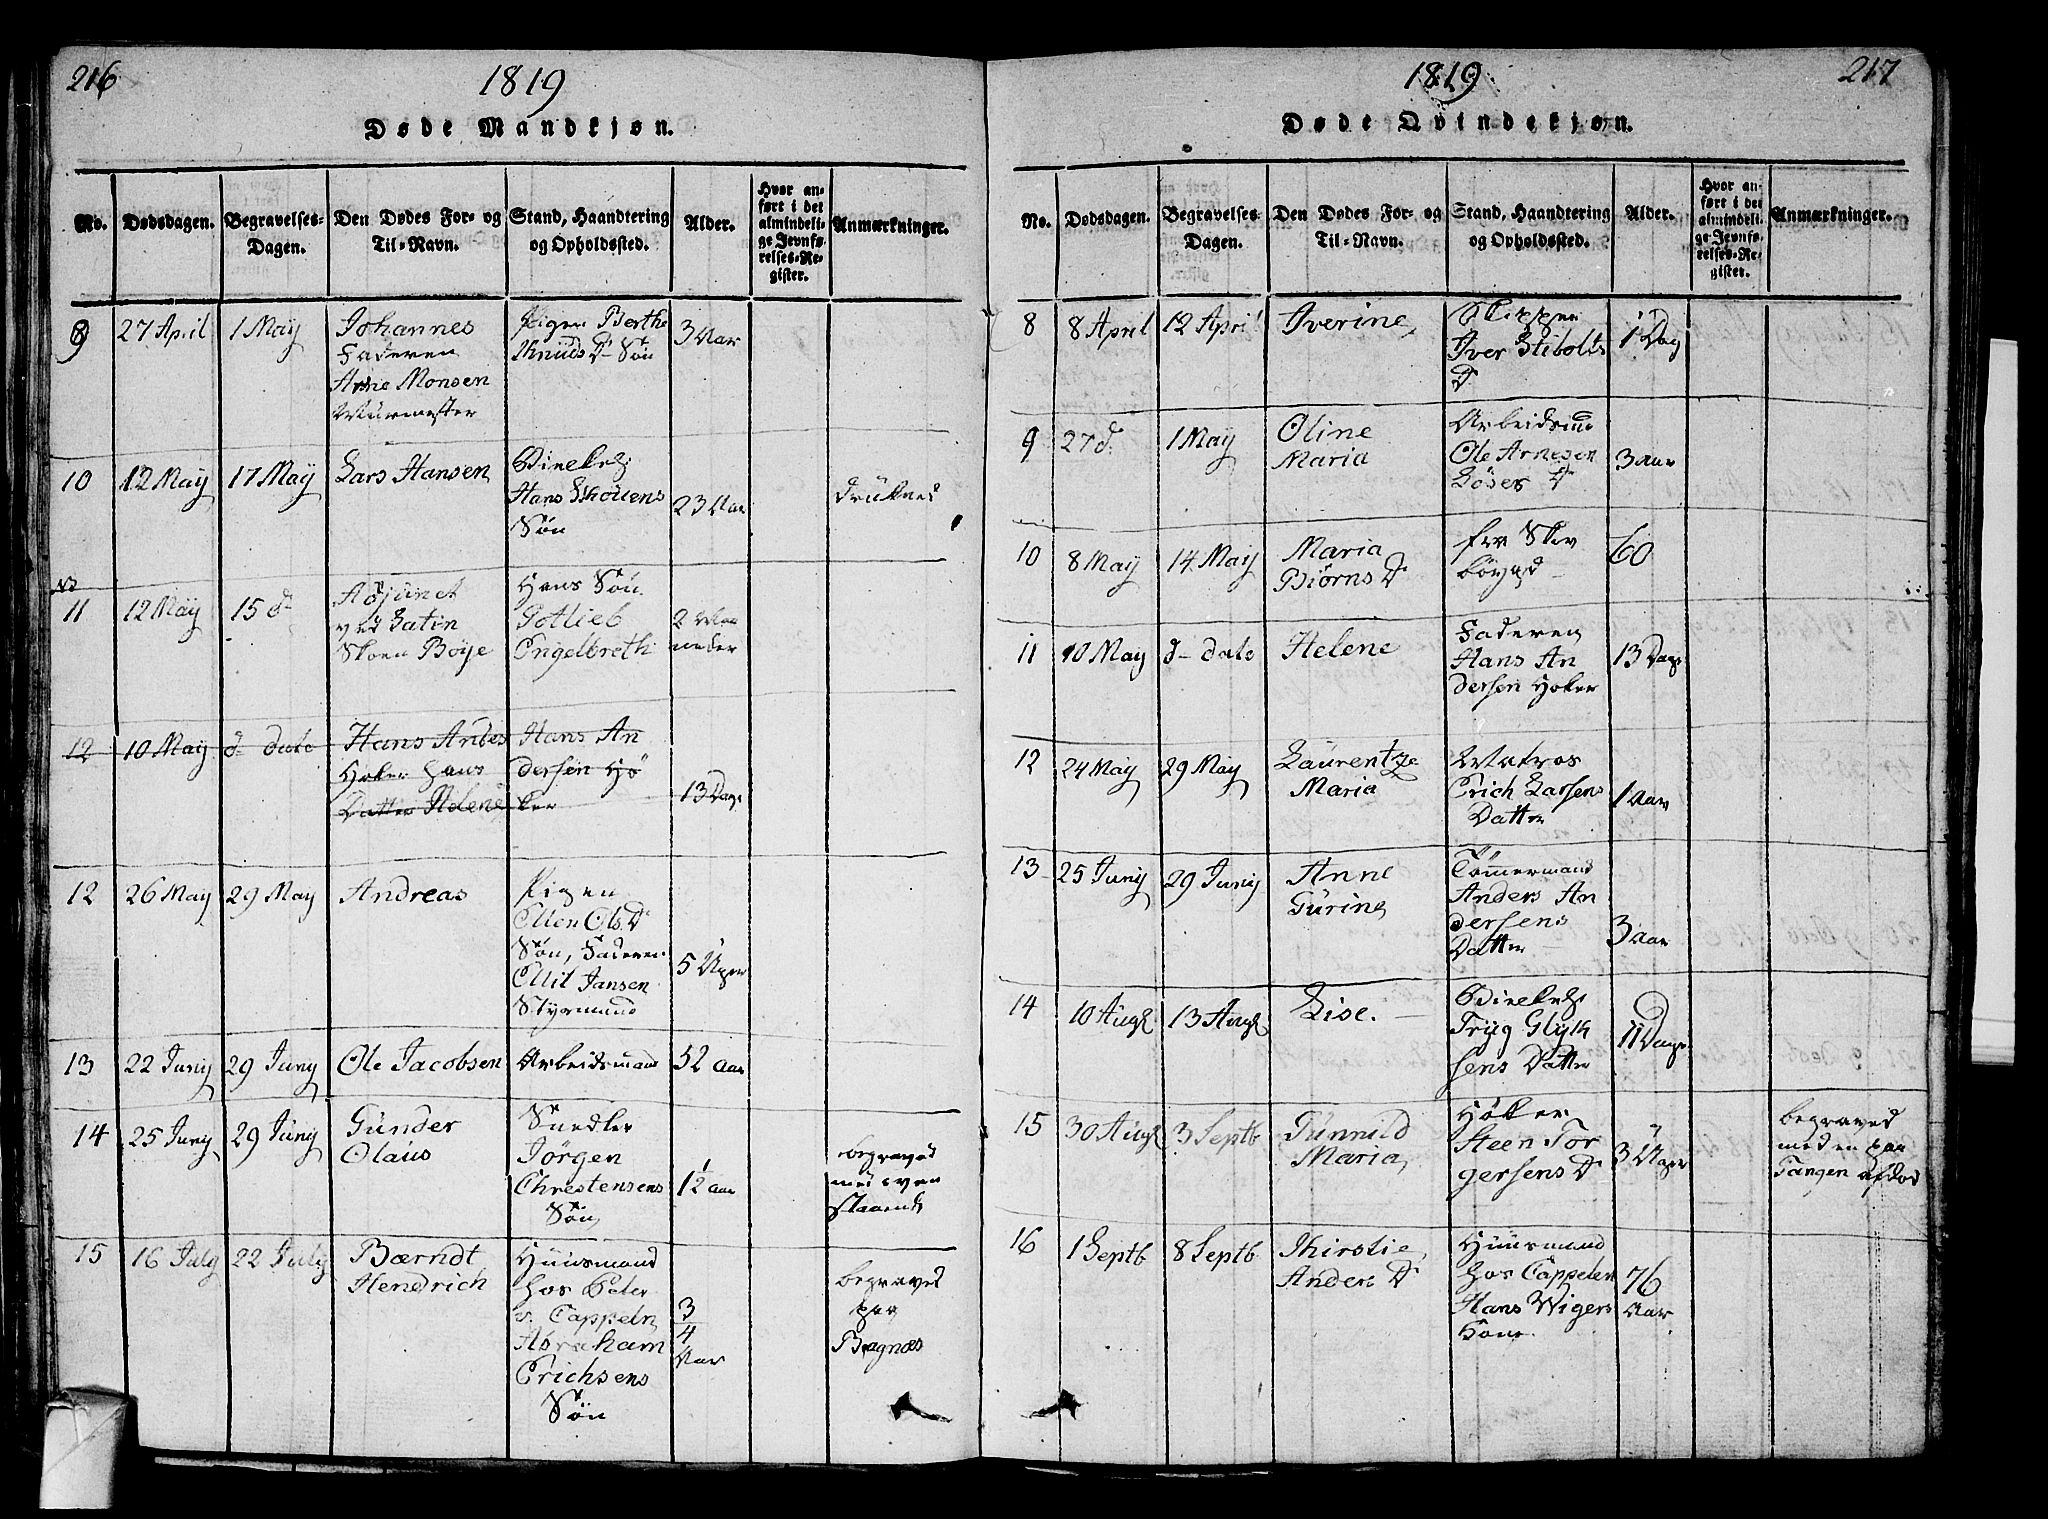 216
1819
Døde Mandkjøn.
No.
Dødsdagen.
Begravelses-
Dagen.
Den Dødes For- og
Til-Navn.
Stand, Haandtering
og Opholdssted.
Alder.
Hvor an-
ført i det
almindeli-
ge Jevnfø-
relses-Re-
gister.
Anmærkninger.
9
27 April
1 May
Johannes
Faderen
Arne Monsen
Muurmester
Pigen Berthe
Knuds D. Søn
3 Aar
10
12 May
17 May
Lars Hansen
Hans
Søn
23 Aar
Druknet
11
12 May
15 d
ved Latin
Skoen Boye
Hans Søn
Gotlieb
Engelbreth
2 Maa
neder
12
10 May
d- dato
Hans Andes
Høker Hans
Datter Helene
Hans An
dersen Hø
ker
13 Dage
12
26 May
29 May
Andreas
Pigen
Ellen Ols D
Søn, Faderen
Ellit Jansen
Styrmand
5 Uger
13
22 Juny
29 Juny
Ole Jacobsen
Arbeidsmand
52 aar
14
25 Juny
29 Juny
Gunder
Olaus
Snedker
Jörgen
Chrestensens
Søn
12 aar
begraved
15
16 July
22 July
Bærndt
Hendrich
Huusmand
hos Peter
v. Cappeln
Abraham
Erichsens
Søn
3
4
Aar
begraved
paa
Bragnæs
217
1819
Døde Qvindekjøn.
No.
Dødsdagen.
Begravelses-
Dagen.
Den Dødes For- og
Til-Navn.
Stand, Haandtering
og Opholdssted.
Alder.
Hvor an-
ført i det
almindeli-
ge Jevnfø-
relses-Re-
gister.
Anmærkninger.
8
8 April
12 April
Iverine
Skipper
Iver Stibolts
D.
1 Dag
9
27 d.
1 May
Oline
Maria
Arbeidsm
Ole Arnesen
Löser D.
3 aar
10
8 May
14 May
Maria
Biörns D.
fra
60
11
10 May
d- dato
Helene
Faderen
Hans An
dersen Høker
13 Dage
12
24 May
29 May
Laurentze
Maria
Matros
Erich Larsens
Datter
1 Aar
13
25 Juny
29 Juny
Anne
Gurine
Tømermand
Anders An
dersens
Datter
3 aar
14
10 Augt
13 Augt
Lise.
Tryg Glyk
sens Datter
11 Dage
15
30 Augt
3 Septb
Gunnild
Maria
Høker
Steen Tor
gersens D.
3 Uger
begraved
med en paa
Tangen afdød
16
1 Septb
8 Septb
Thirstie
Anders D.
Huusmand
hos Cappelen
Hans Wigers
Kone
76
Aar